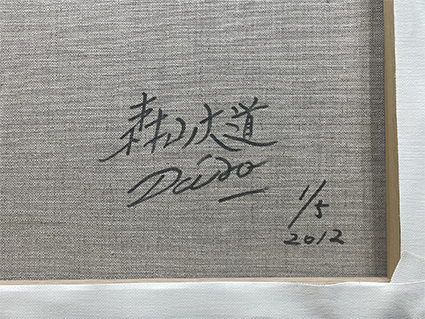 森山大道
Daido
1/5
2012